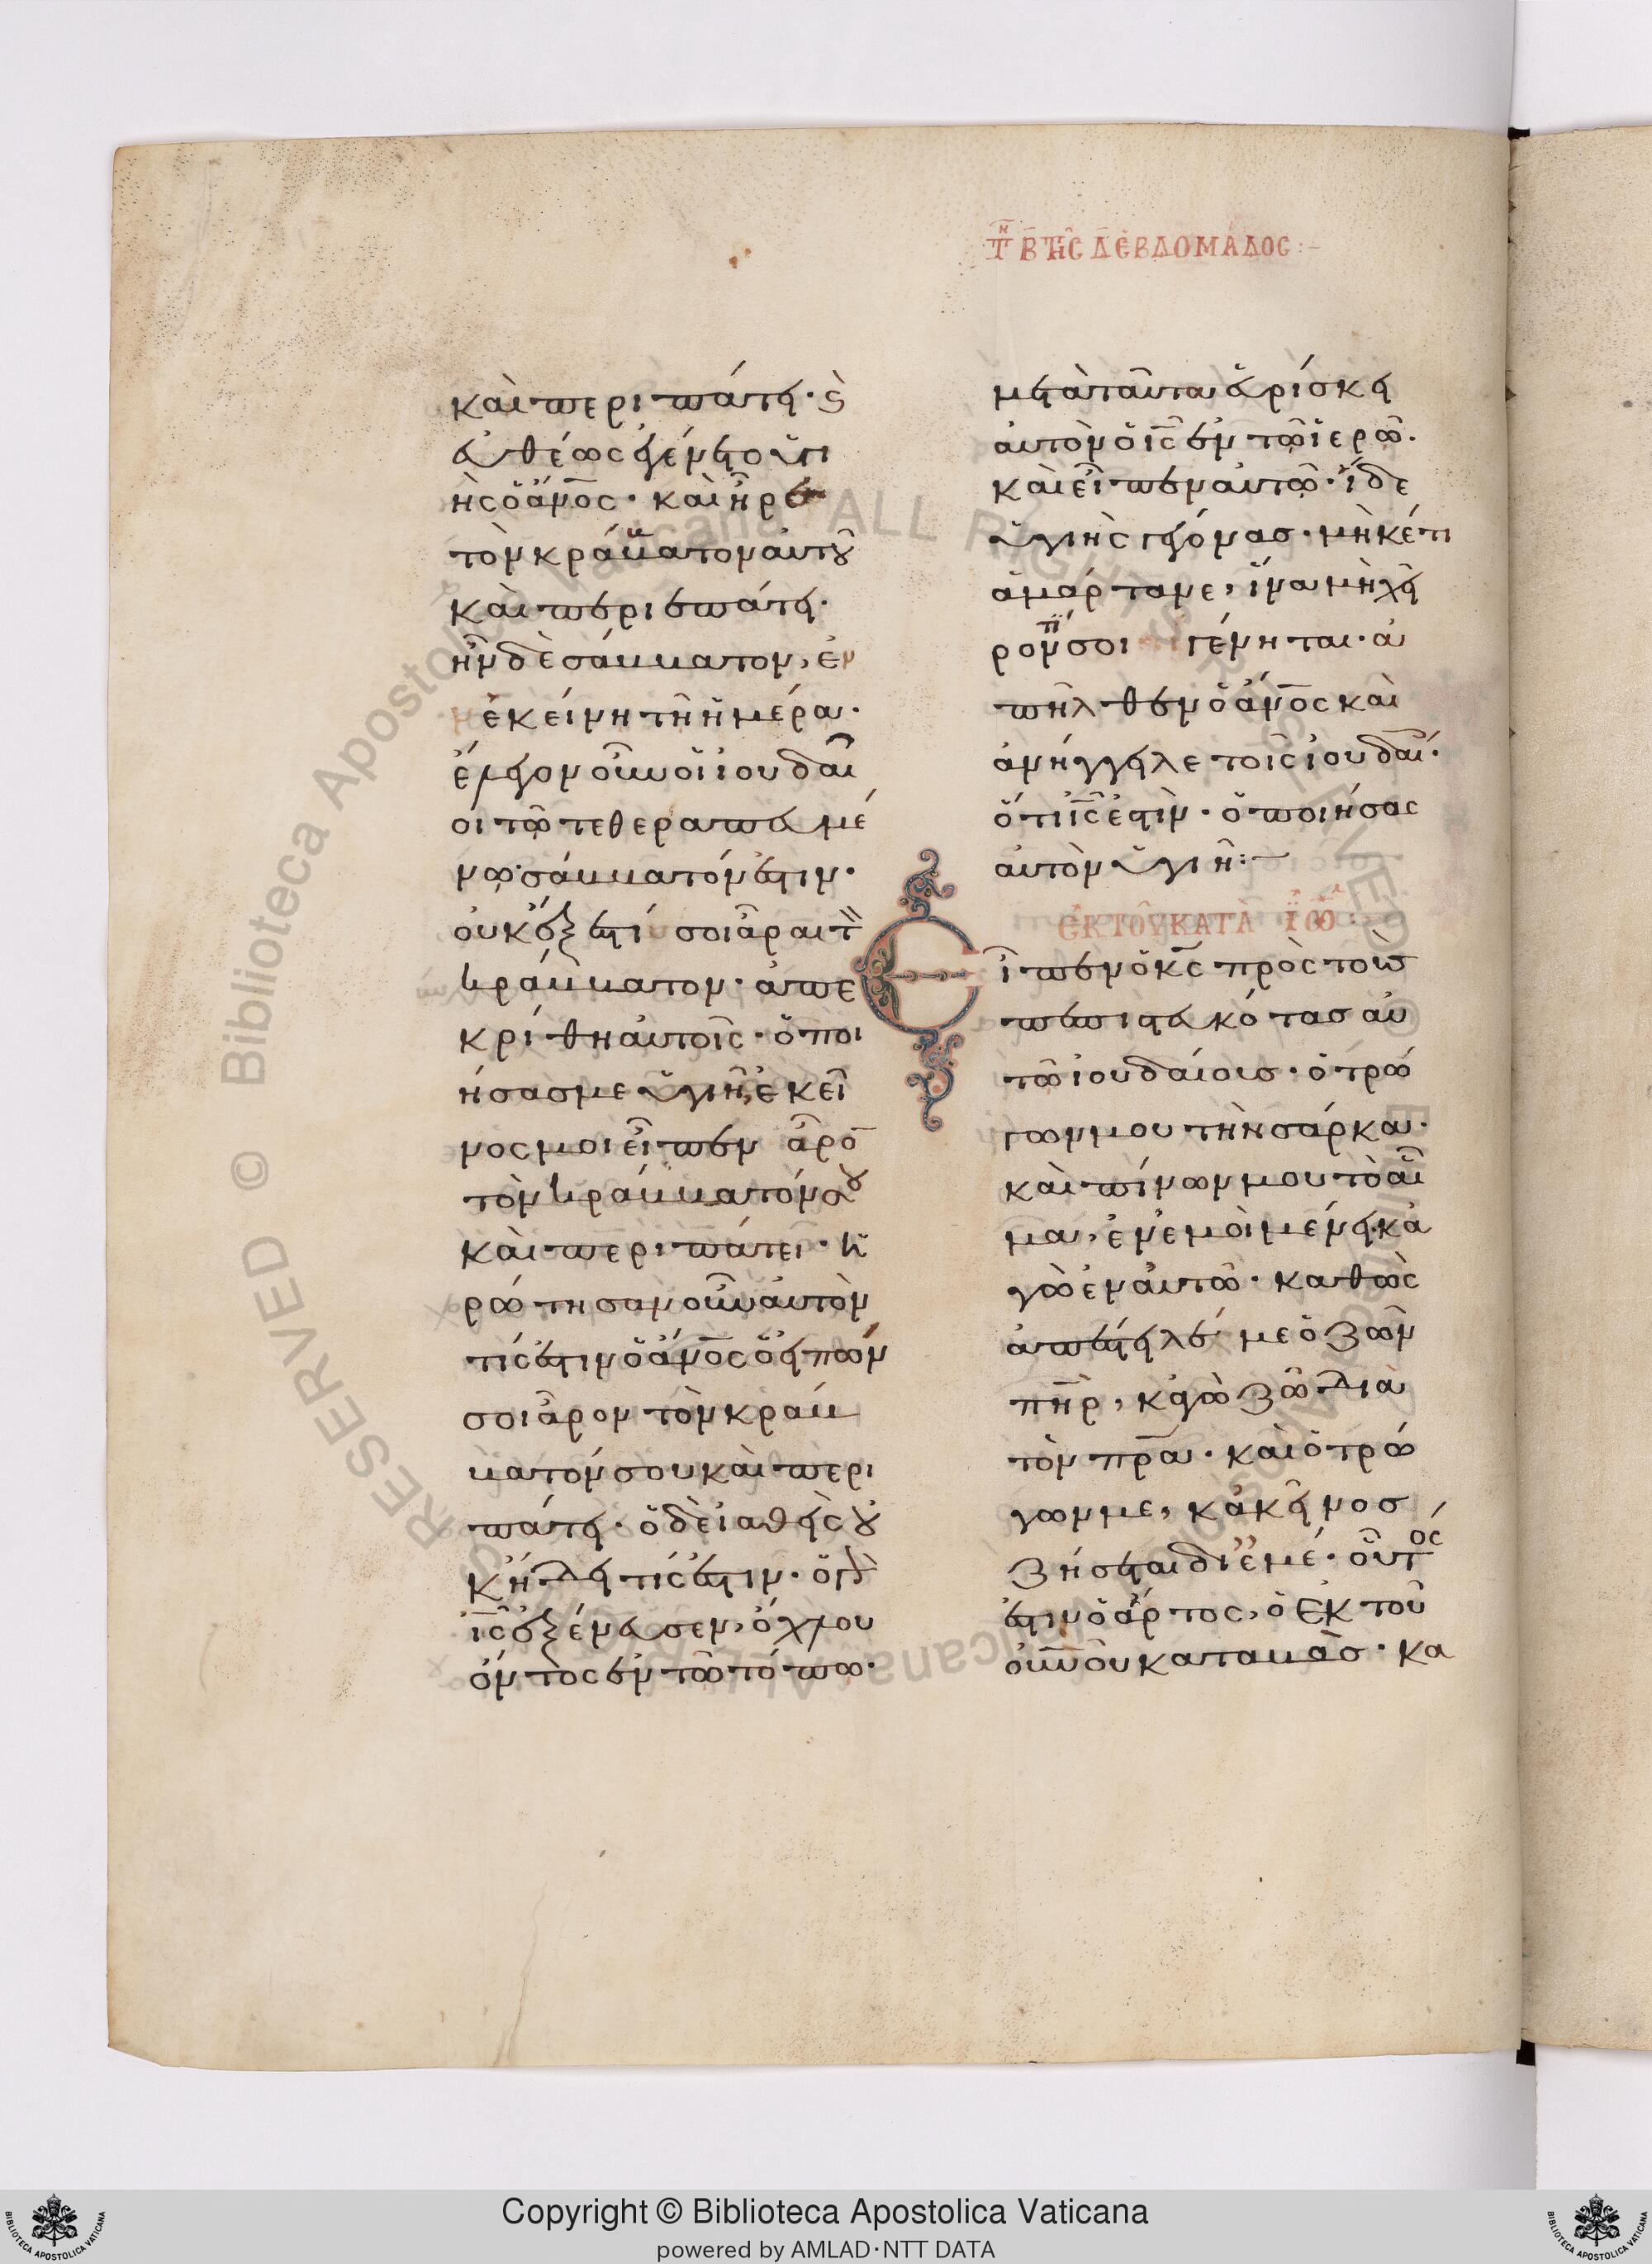 τῆ β τῆς δ ἑβδομάδος:–
καὶ περιπάτει· καὶ
εὐθέως ἐγένετο ὑγι
ὴς ὁ ἄνος· καὶ ἦρε
τὸν κράββατον αὐτοῦ
καὶ περιεπάτει·
ἦν δὲ σάββατον, ἐν
ἐκείνη τῆ ἡμέρα·
ἔλεγον οὖν οἱ ἰουδαῖ
οι τῶ τεθεραπευμέ
νω· σάββατόν ἐστιν·
οὐκ ἔξεστί σοι ἆραι τὸν
κράββατον· ἀπε
κρίθη αὐτοῖς· ὁ ποι
ήσας με ὑγιῆ, ἐκεῖ
νος μοι εἶπεν ἆρον
τὸν κράββατόν σου
καὶ περιπάτει· ἠ
ρώτησαν οὖν αὐτὸν
τίς ἐστιν ὁ ἄνος ὁ εἰπών
σοι ἆρον τὸν κράβ
βατόν σου καὶ περι
πάτει· ὁ δὲ ἰαθεὶς οὐ
κ ἤδει τίς ἐστιν· ὁ γὰρ
ις ἐξένευσεν, ὄχλου
ὄντος ἐν τῶ τόπω·
μετὰ ταῦτα εὑρίσκει
αὐτὸν ὁ ις ἐν τῶ ἱερῶ·
καὶ εἶπεν αὐτῶ· ἴδε
ὑγιὴς γέγονας· μηκέτι
ἁμάρτανε, ἵνα μὴ χεῖ
ρόν τί σοι γένηται· ἀ
πῆλθεν ὁ ἄνος καὶ
ἀνήγγειλε τοῖς ἰουδαί·
ὅτι ις ἐστὶν· ὁ ποιήσας
αὐτὸν ὑγιῆ:–
ἐκ τοῦ κατὰ ἰω
Εἶπεν ὁ κς πρὸς τοὺς
πεπιστευκότας αὐ
τῶ ἰουδαίους· ὁ τρώ
γων μου τὴν σάρκα·
καὶ πίνων μου τὸ αἷ
μα, ἐν ἐμοὶ μένει· κἀ
γὼ ἐν αὐτῶ· καθὼς
ἀπέστειλέ με ὁ ζῶν
πηρ, κἀγὼ ζῶ διὰ
τὸν πρα· καὶ ὁ τρώ
γων με, κἀκεῖνος
ζήσεται δι' ἐμέ· οὗτός
ἐστιν ὁ ἄρτος, ὁ ἐκ τοῦ
οὐνοῦ καταβάς· κα
Copyright © Biblioteca Apostolica Vaticana
powered by AMLAD·NTT DATA